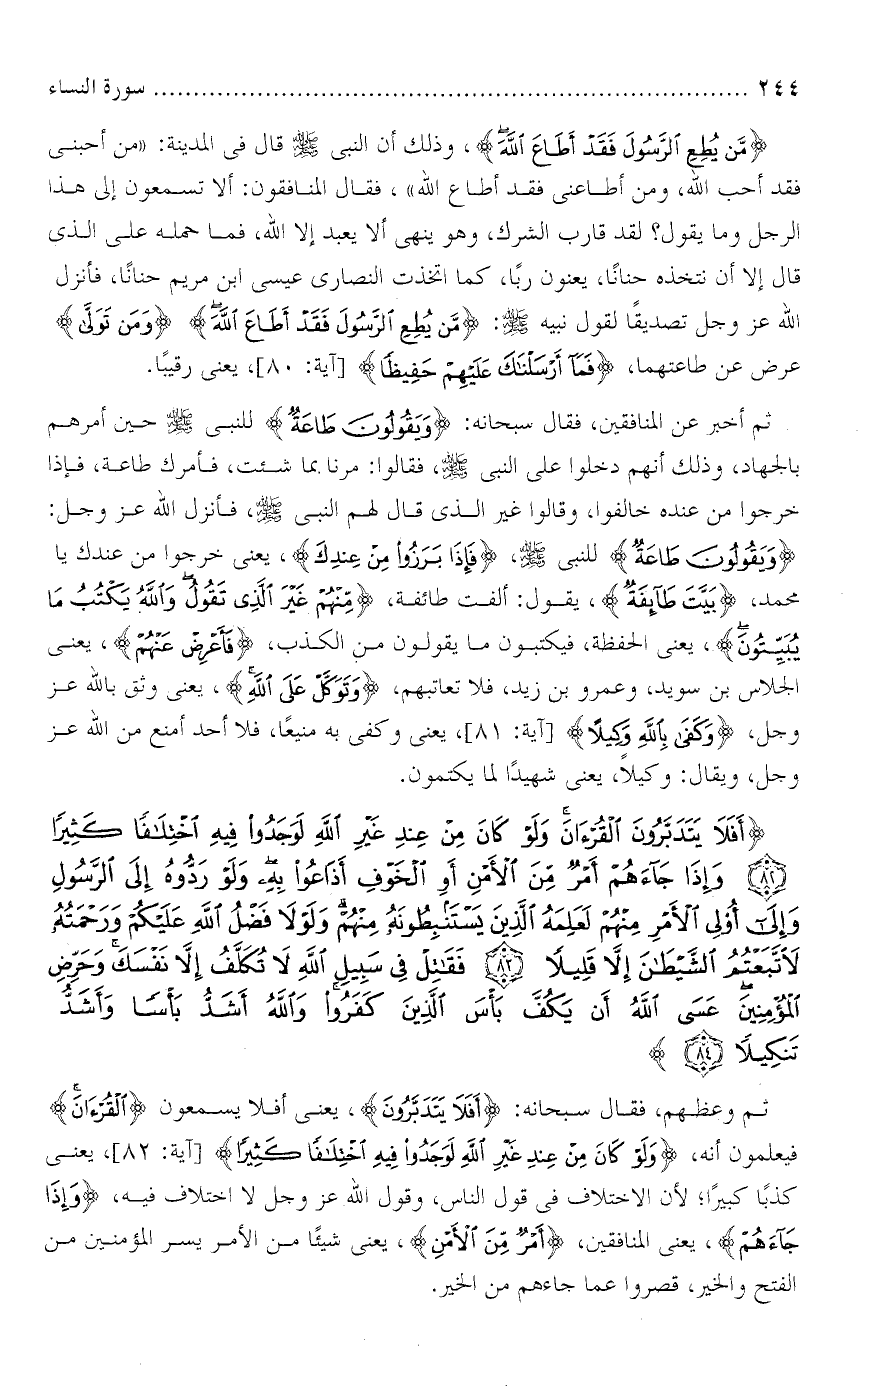 ٢٤٤ ........................................................................ سورة النساء
﴿مَّن يُطِعِ ٱلرَّسُولَ فَقَدۡ أَطَاعَ ٱللَّهَۖ﴾، وذلك أن النبى ﷺ قال فى المدينة: «من أحبنى
فقد أحب الله، ومن أطاعنى فقد أطاع الله»، فقال المنافقون: ألا تسمعون إلى هذا
الرجل وما يقول؟ لقد قارب الشرك، وهو ينهى ألا يعبد إلا الله، فما حمله على الذى
قال إلا أن نتخذه حنانًا، يعنون ربًا، كما اتخذت النصارى عيسى ابن مريم حنانًا، فأنزل
الله عز وجل تصديقًا لقول نبيه ﷺ: ﴿مَّن يُطِعِ ٱلرَّسُولَ فَقَدۡ أَطَاعَ ٱللَّهَۖ﴾ ﴿وَمَن تَوَلَّىٰ﴾
عرض عن طاعتهما، ﴿فَمَآ أَرۡسَلۡنَٰكَ عَلَيۡهِمۡ حَفِيظٗا﴾ [آية: ٨٠]، يعنى رقيبًا.
ثم أخبر عن المنافقين، فقال سبحانه: ﴿وَيَقُولُونَ طَاعَةٞ﴾ للنبى ﷺ حين أمرهم
بالجهاد، وذلك أنهم دخلوا على النبى ﷺ، فقالوا: مرنا بما شئت، فأمرك طاعة، فإذا
خرجوا من عنده خالفوا، وقالوا غير الذى قال لهم النبى ﷺ، فأنزل الله عز وجل:
﴿وَيَقُولُونَ طَاعَةٞ﴾ للنبى ﷺ، ﴿فَإِذَا بَرَزُواْ مِنۡ عِندِكَ﴾، يعنى خرجوا من عندك يا
محمد، ﴿بَيَّتَ طَآئِفَةٞ﴾، يقول: ألفت طائفة، ﴿مِّنۡهُمۡ غَيۡرَ ٱلَّذِى تَقُولُۖ وَٱللَّهُ يَكۡتُبُ مَا
يُبَيِّتُونَۖ﴾، يعنى الحفظة، فيكتبون ما يقولون من الكذب، ﴿فَأَعۡرِضۡ عَنۡهُمۡ﴾، يعنى
الجلاس بن سويد، وعمرو بن زيد، فلا تعاتبهم، ﴿وَتَوَكَّلۡ عَلَى ٱللَّهِۚ﴾، يعنى وثق بالله عز
وجل، ﴿وَكَفَىٰ بِٱللَّهِ وَكِيلًا﴾ [آية: ٨١]، يعنى وكفى به منيعًا، فلا أحد أمنع من الله عز
وجل، ويقال: وكيلاً، يعنى شهيدًا لما يكتمون.
﴿أَفَلَا يَتَدَبَّرُونَ ٱلۡقُرۡءَانَۚ وَلَوۡ كَانَ مِنۡ عِندِ غَيۡرِ ٱللَّهِ لَوَجَدُواْ فِيهِ ٱخۡتِلَٰفٗا كَثِيرٗا
٨٢ وَإِذَا جَآءَهُمۡ أَمۡرٞ مِّنَ ٱلۡأَمۡنِ أَوِ ٱلۡخَوۡفِ أَذَاعُواْ بِهِۦۖ وَلَوۡ رَدُّوهُ إِلَى ٱلرَّسُولِ
وَإِلَىٰٓ أُوْلِى ٱلۡأَمۡرِ مِنۡهُمۡ لَعَلِمَهُ ٱلَّذِينَ يَسۡتَنۢبِطُونَهُۥ مِنۡهُمۡۗ وَلَوۡلَا فَضۡلُ ٱللَّهِ عَلَيۡكُمۡ وَرَحۡمَتُهُۥ
لَٱتَّبَعۡتُمُ ٱلشَّيۡطَٰنَ إِلَّا قَلِيلٗا ٨٣ فَقَٰتِلۡ فِى سَبِيلِ ٱللَّهِ لَا تُكَلَّفُ إِلَّا نَفۡسَكَۚ وَحَرِّضِ
ٱلۡمُؤۡمِنِينَۖ عَسَى ٱللَّهُ أَن يَكُفَّ بَأۡسَ ٱلَّذِينَ كَفَرُواْۚ وَٱللَّهُ أَشَدُّ بَأۡسٗا وَأَشَدُّ
تَنكِيلٗا ٨٤ ﴾
ثم وعظهم، فقال سبحانه: ﴿أَفَلَا يَتَدَبَّرُونَ﴾، يعنى أفلا يسمعون ﴿ٱلۡقُرۡءَانَۚ﴾
فيعلمون أنه، ﴿وَلَوۡ كَانَ مِنۡ عِندِ غَيۡرِ ٱللَّهِ لَوَجَدُواْ فِيهِ ٱخۡتِلَٰفٗا كَثِيرٗا﴾ [آية: ٨٢]، يعنى
كذبًا كبيرًا؛ لأن الاختلاف فى قول الناس، وقول الله عز وجل لا اختلاف فيه، ﴿وَإِذَا
جَآءَهُمۡ﴾، يعنى المنافقين، ﴿أَمۡرٞ مِّنَ ٱلۡأَمۡنِ﴾، يعنى شيئًا من الأمر يسر المؤمنين من
الفتح والخير، قصروا عما جاءهم من الخير.